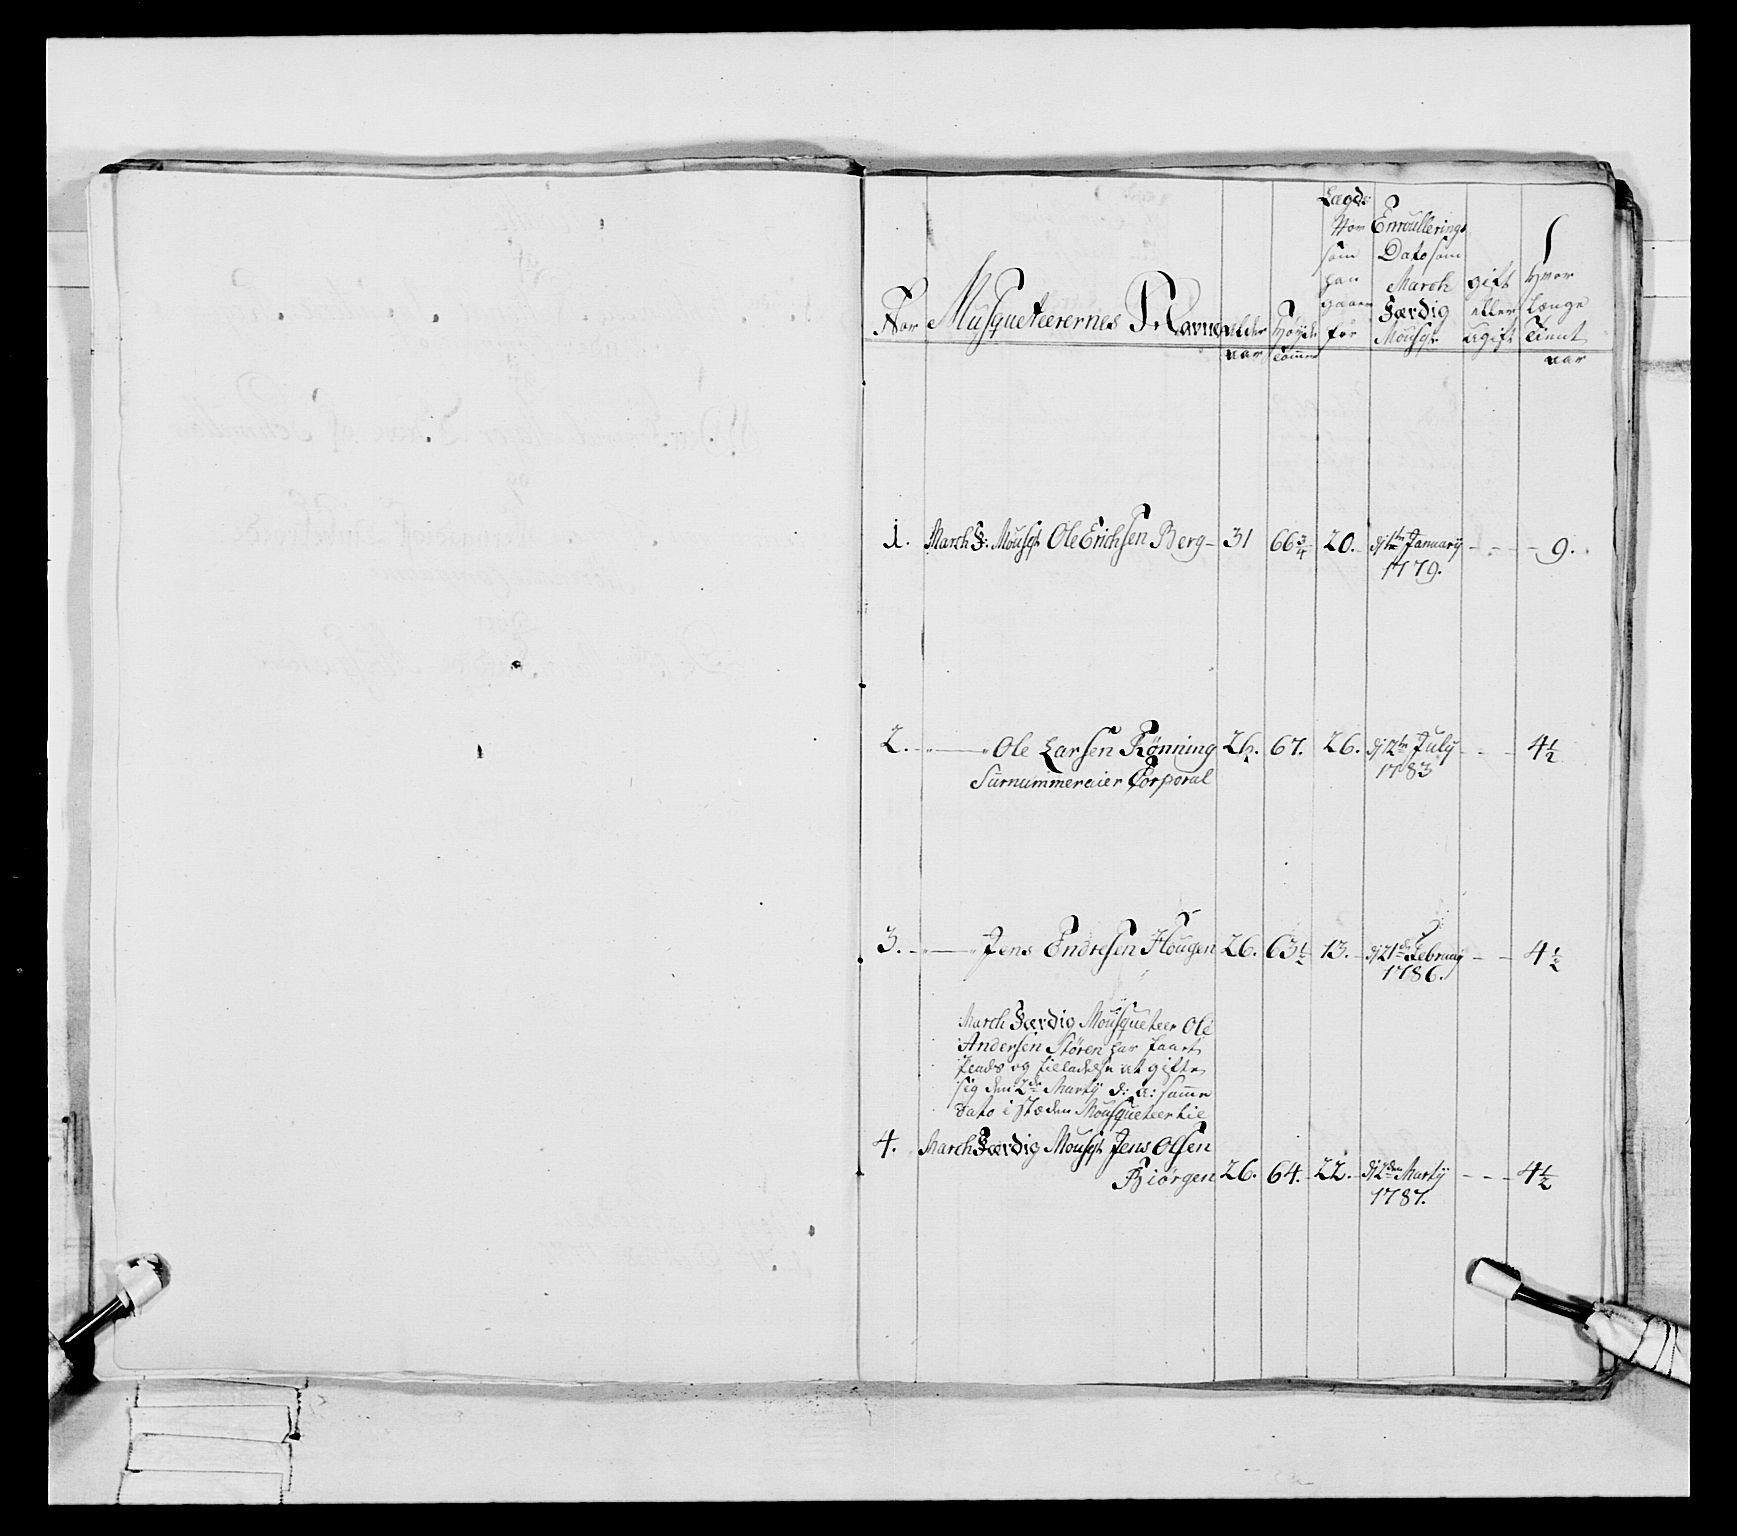 Nor
Musqueteerernes Navne
Alder
aar
Høyde
Tommer
Lægds
Nor
som
han
gaaer
for
Enroullerings
Dato som
March
Færdig
Mousqt
gift
eller
ugift
Hvor
længe
tient
aar
1. March F: Mousqt Ole Erichsen Berg - 31 66 3/4 20. - d 1te January - - - 9.
1779.
2. - " - " Ole Larsen Rønning 26. 67. 26. d 12te July - - - 4 1/2
Surnummeraier Corporal 1783
3. - " - " Jens Endresen Hougen 26. 63 1/2 13. - d 21de February - - 4 1/2
1786.
March Færdig Mousqueteer Ole
Andersen Støren har faaet
Pads og tilladelse at gifte
sig den 2de Martij d: a: samme
Dato i stæden Mousqueteer til
4. March Færdig Mousqt Jens Olsen
Biørgen 26. 64. - 22. - d 2den Martij - - - 4 1/2
1787.